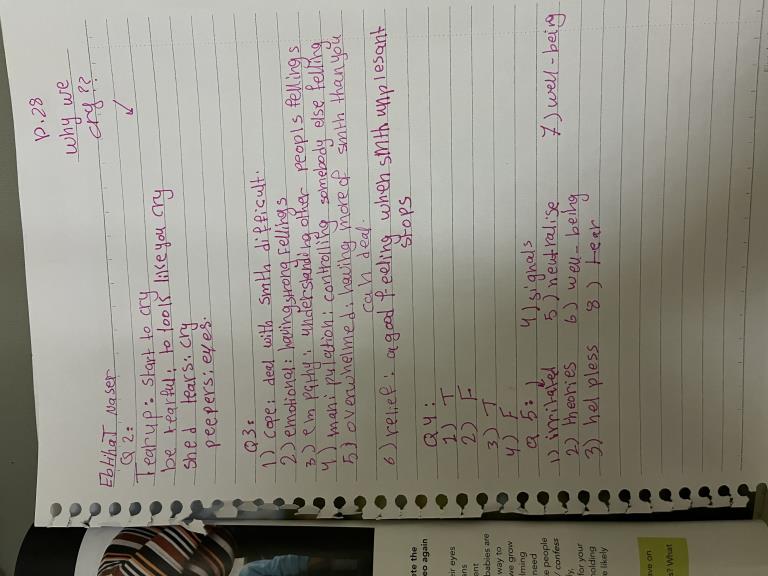 p.28
why we
cry??
Ebtihat Naser
Q2:
Tear up: start to cry
be tearful: to look like you cry
shed tears: cry
peepers: eyes.
Q3:
1) cope: deal with smth difficult.
2) emotional: having strong fellings
3) empathy: understanding other people fellings
4) manipulation: controlling somebody else felling
5) overwhelmed: having more of smth than you
can deal.
6) relief: a good feeling when smth unplesant
stops
Q4:
1) T
2) F
3) T
4) F
Q5:
1) irritated 4) signals
2) theories 5) neutralise 7) well-being
3) helpless 6) well-being
8) tear
ete the
eo again
eir eyes
ns
ent
babies are
way to
we grow
lming
need
e people
confess
y,
for your
olding
e likely
ve on
s? What